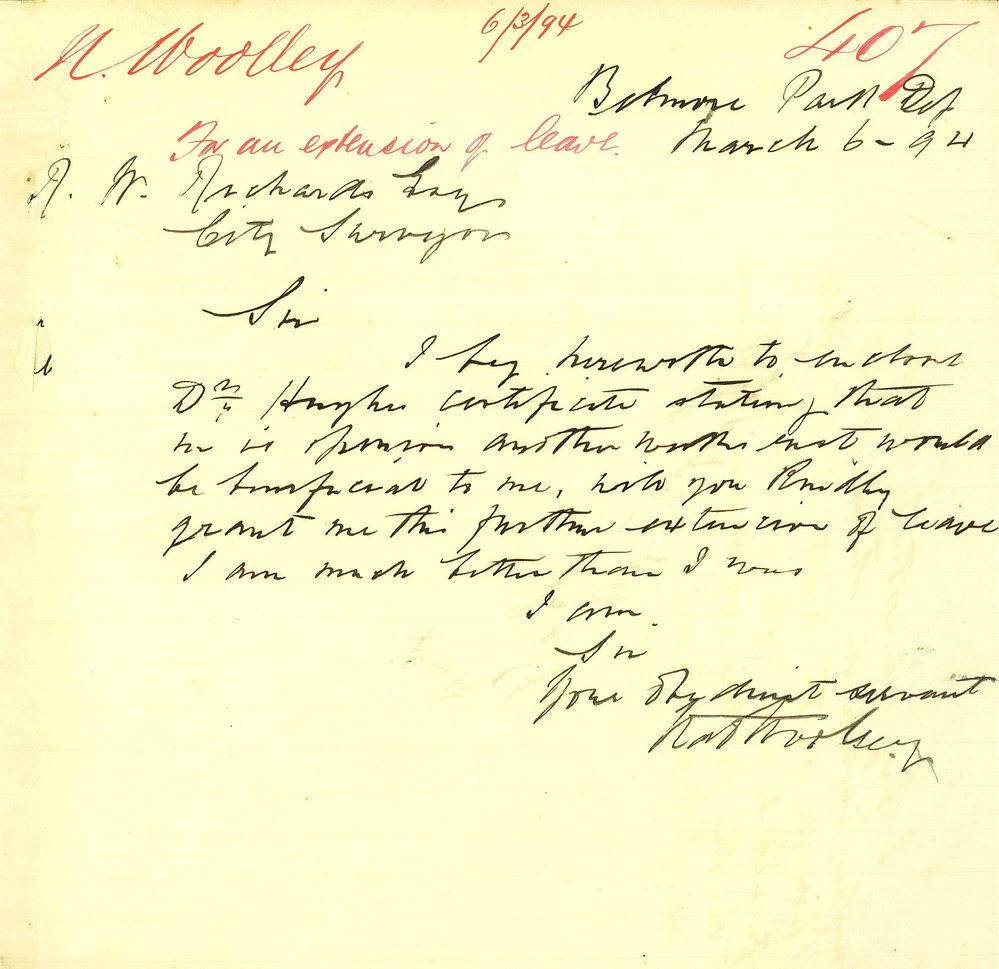 6/3/94
N. Woolley 407
Belmore Park Dep
For an extension of leave. March 6 - 94
R. W. Richards Esq
City Surveyor
Sir
I beg herewith to enclose
Dr Hughes certificate stating that
in is opinion another weeks rest would
be beneficial to me, will you Kindly
grant me this further extension of leave
I am much better than I was
I am.
Sir
Your Obedient servant
Nat Woolley